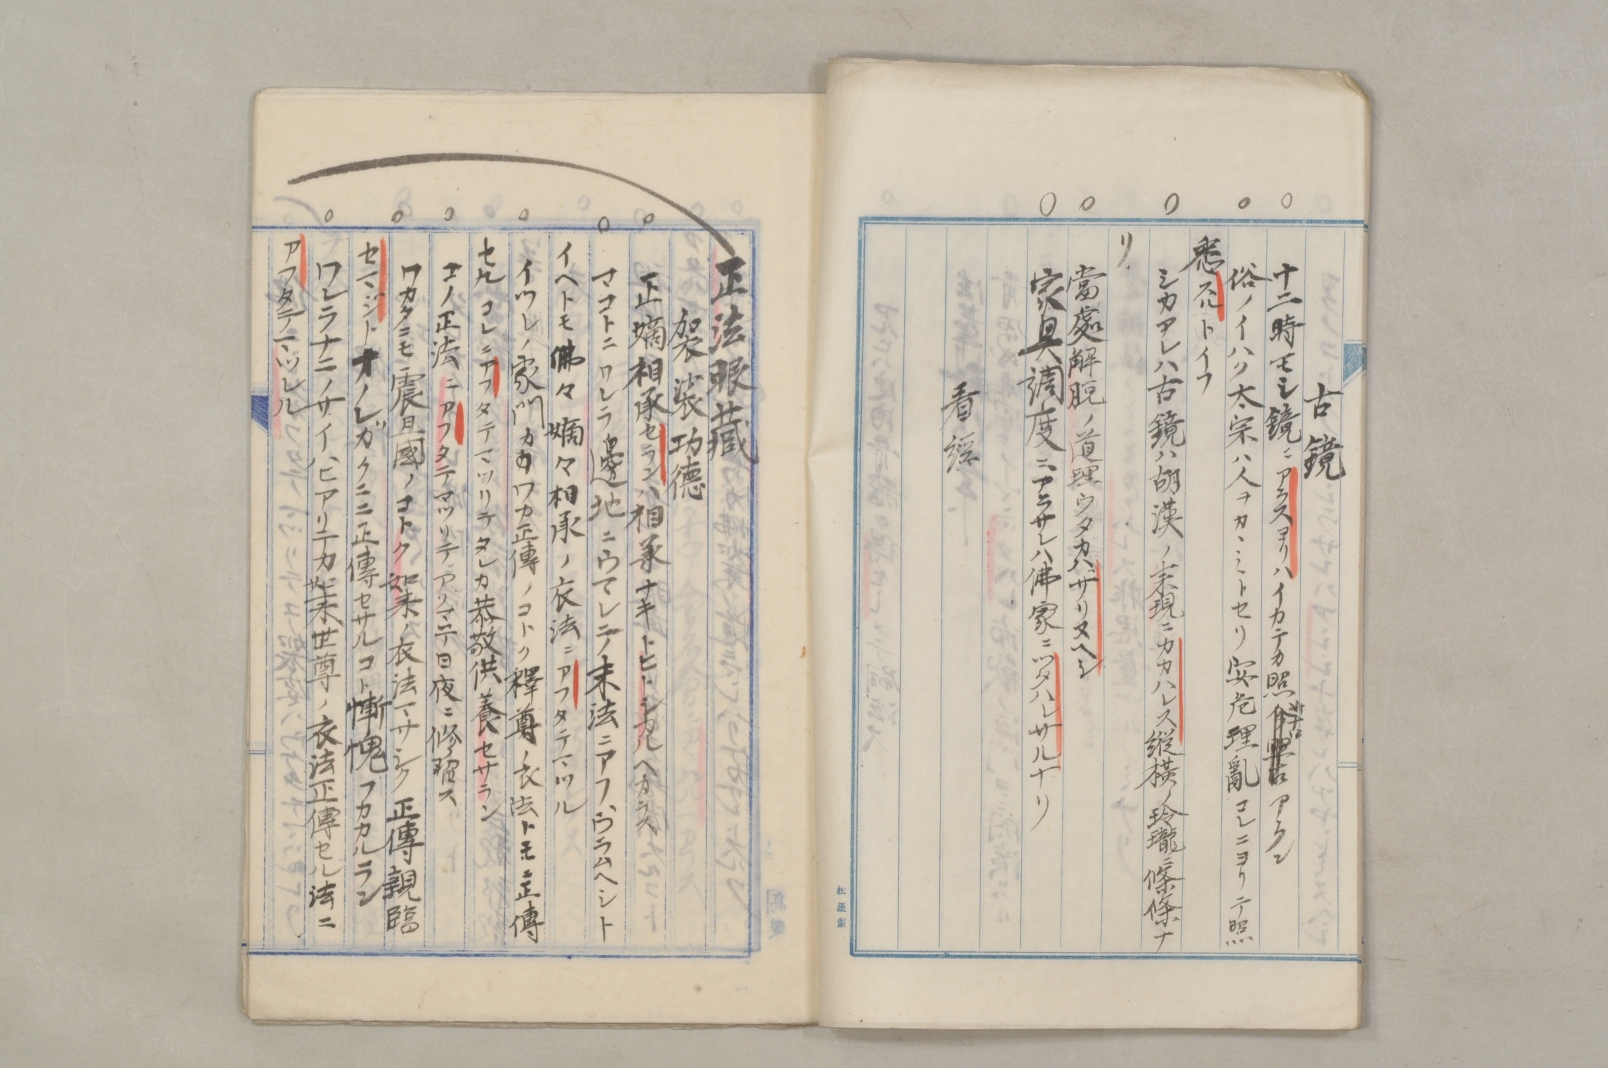 古鏡
十二時モシ鏡ニアラスヨリハイカテカ照古アラン
俗ノイハク太宗ハ人ヲカヽミトセリ安危理亂コレニヨリテ照
悉スルトイフ
シカアレハ古鏡ハ胡漢ノ来現ニカカハレス縦横ノ玲瓏ニ條條ナ
リ
當處解脱ノ道理ウタカハザリヌヘシ
家具調度ニアラサレハ佛家ニツタハレサルナリ
看經
正法眼藏
袈裟功德
正嫡相承セランハ相承ナキトヒトシカルヘカラス
マコトニワレラ邊地ニウマレテ末法ニアフ、ウラムヘシト
イヘトモ佛々嫡々相承ノ衣法ニアフタテマツル
イツレノ家門カワカ正傳ノコトク釋尊ノ衣法トモニ正傳
セル コレニアフタテマツリテタレカ恭敬供養セサラン
コノ正法ニアフタテマツリテアクマテ日夜ニ修習ス
ワカクニモ震旦國ノコトク如来ノ衣法マサシク正傳親臨
セマジトオノレガクニニ正傳セサルコト慚愧フカカルラン
ワレラナニノサイハヒアリテカ如来世尊ノ衣法正傳セル法ニ
アフタテマツレル
松屋製